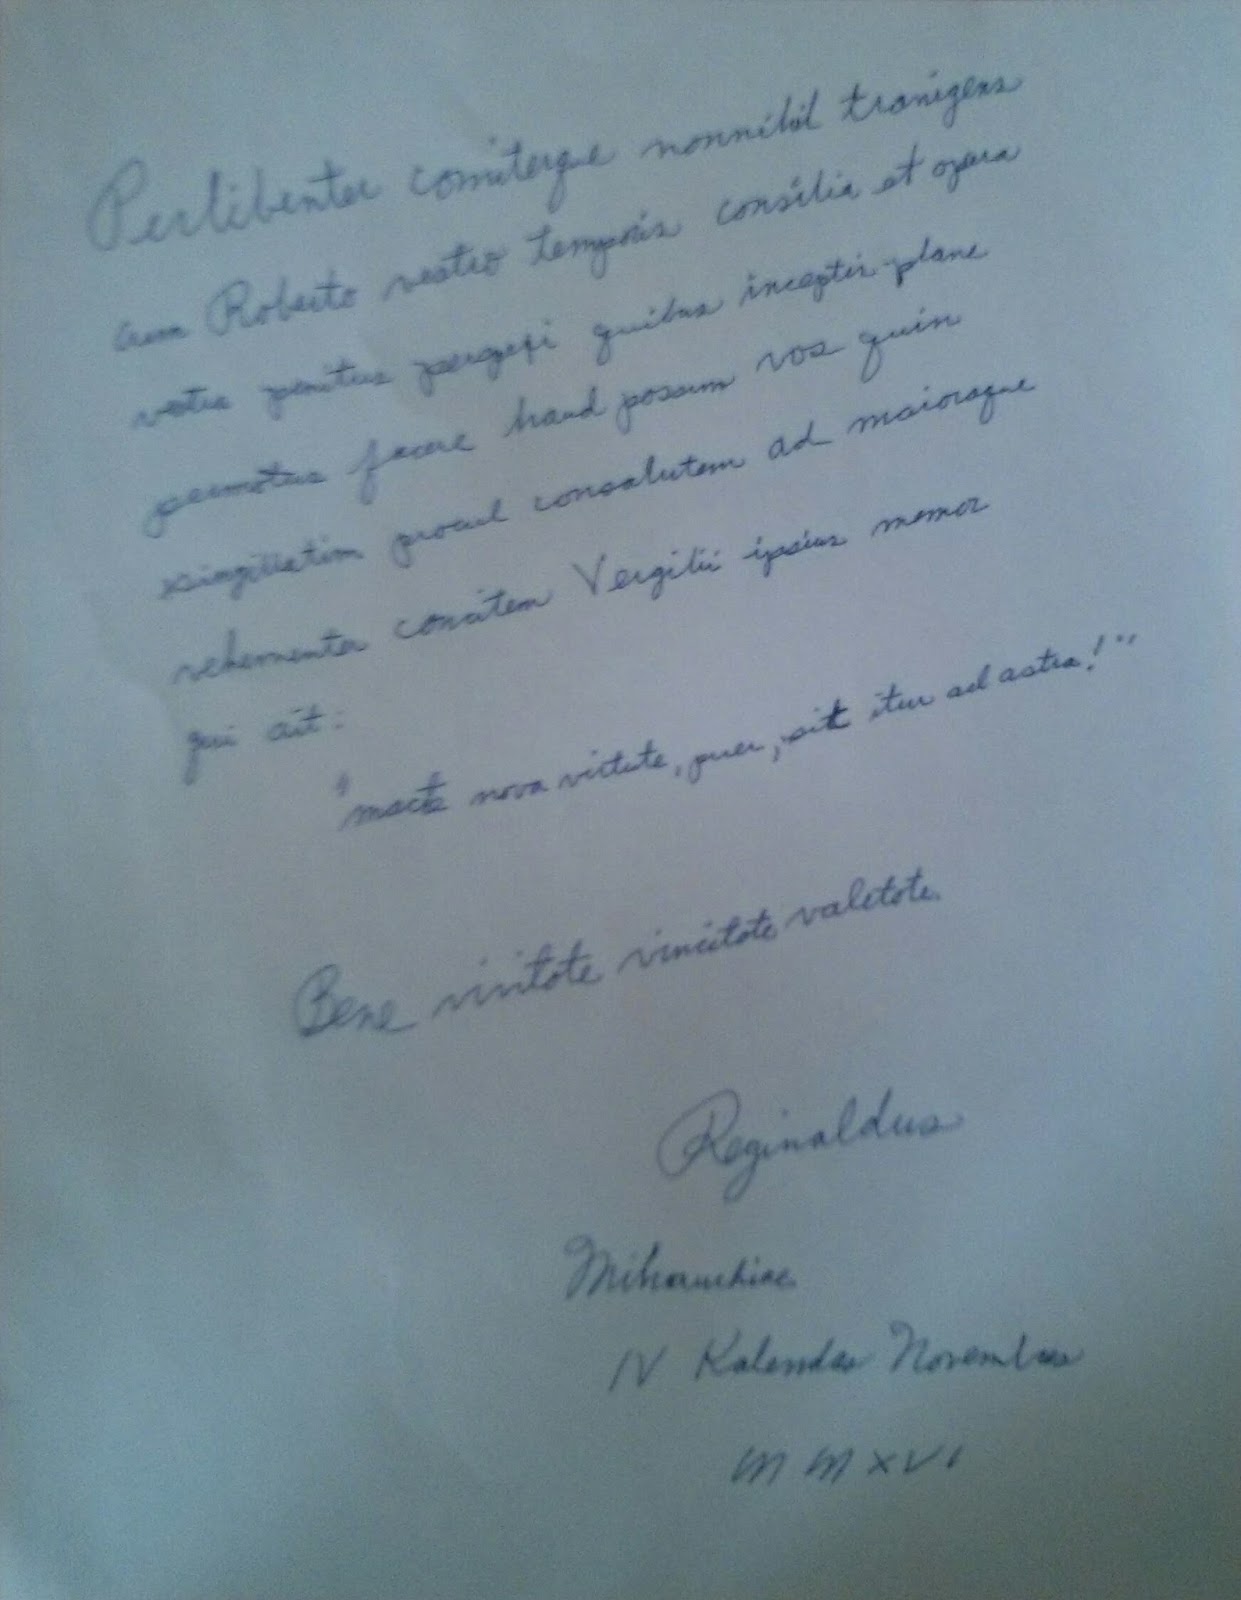 Perlibenter comiterque nonnihil transigens
cum Roberto vestro temporis consilia et opera
vestra penitus perspexi quibus inceptis plane
permotus facere haud possum vos quin
singillatim procul consalutem ad maioraque
vehementer concitem Vergilii ipsius memor
qui ait:
"macte nova virtute, puer, sit itur ad astra!"
Bene vivitote vincitote valetote.
Reginaldus
Milvauchiae
IV Kalendas Novembres
MMXVI